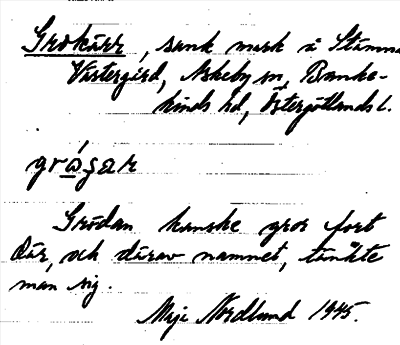 Grokärr, sank mark å Stämma
Västergård, Askeby sn, Banke-
kinds hd, Östergötlands l.
Grödan kanske gror fort
där, och därav namnet, tänkte
man sig.
Maja Nordlund 1945.